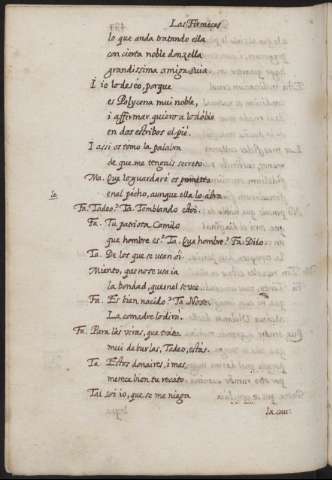 Las Firmezas
lo que anda tratando ella
con cierta noble donzella
grandissima amiga suia
I io lo desèo, porque
es Polycena mui noble,
i affirmar quiero a lo doble
en dos estribos el piè.
I assi os tomo la palabra
de que me tengais secreto.
Ma. Que lo guardarè os prometto
en el pecho, aunque ella lo abra
Fa. Tadeo? Ta. Temblando estoi.
Fa. Tu patriota Camilo
que hombre es? Ta. Que hombre? Fa. Dilo
Ta. De los que se usan oi.
Miento, que no se usa ia
la bondad, que en el se vee
Fa. Es bien nacido? Ta. No se.
La comadre lo dirà.
Fa. Para las veras, que trato
mui de burlas, Tadeo, estàs.
Ta. Estos donaires, i mas
merece bien tu recato
Tal soi io, que se me niega
la cau